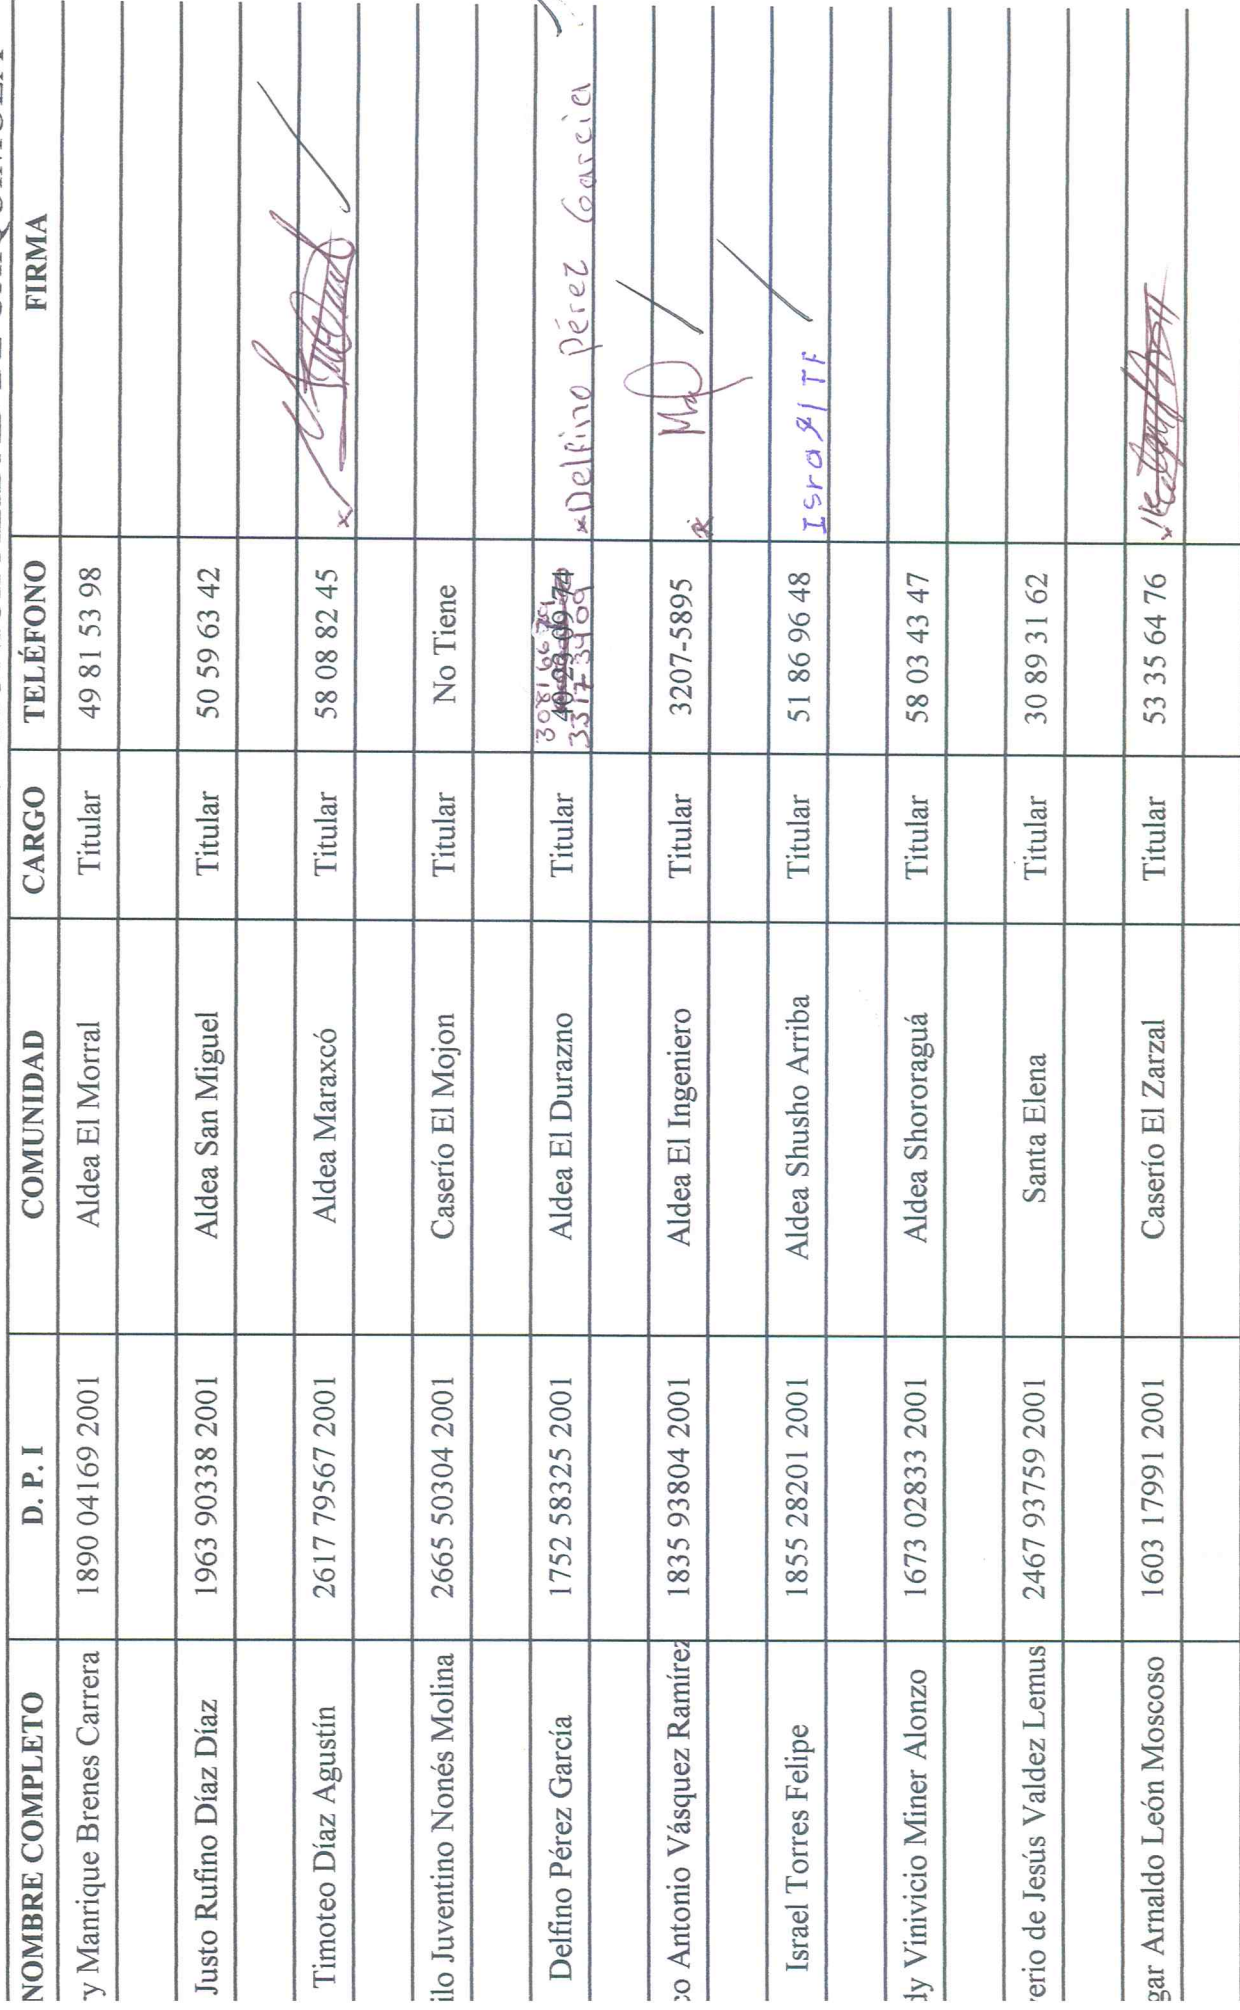 NOMBRE COMPLETO D. P. I COMUNIDAD CARGO TELÉFONO FIRMA
y Manrique Brenes Carrera 1890 04169 2001 Aldea El Morral Titular 49 81 53 98
Justo Rufino Díaz Díaz 1963 90338 2001 Aldea San Miguel Titular 50 59 63 42
Timoteo Díaz Agustín 2617 79567 2001 Aldea Maraxcó Titular 58 08 82 45 x
ilo Juventino Nonés Molina 2665 50304 2001 Caserío El Mojon Titular No Tiene
Delfino Pérez García 1752 58325 2001 Aldea El Durazno Titular 3317 3409 xDelfino pérez Garcia
co Antonio Vásquez Ramírez 1835 93804 2001 Aldea El Ingeniero Titular 3207-5895
Israel Torres Felipe 1855 28201 2001 Aldea Shusho Arriba Titular 51 86 96 48 Israel TF
dy Vinivicio Miner Alonzo 1673 02833 2001 Aldea Shororaguá Titular 58 03 43 47
verio de Jesús Valdez Lemus 2467 93759 2001 Santa Elena Titular 30 89 31 62
gar Arnaldo León Moscoso 1603 17991 2001 Caserío El Zarzal Titular 53 35 64 76 x